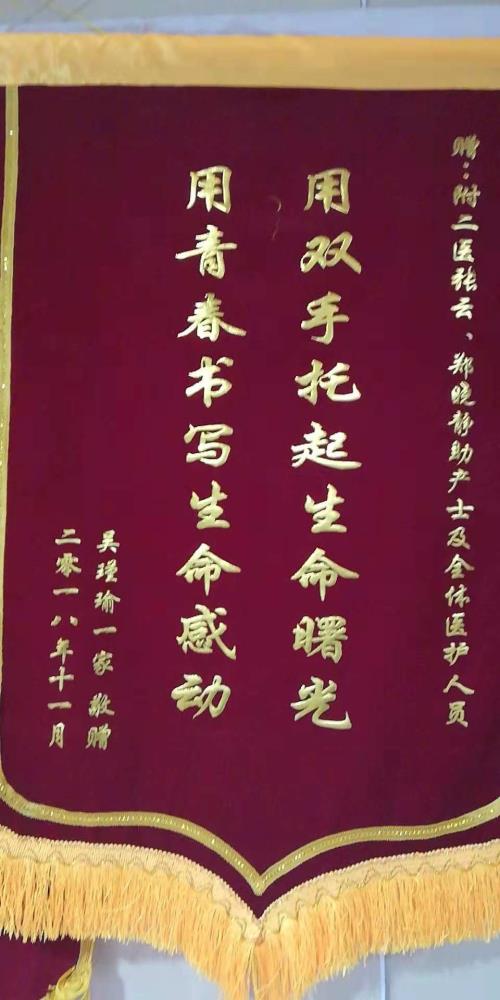 赠：附二医张云、郑晓静助产士及全体医护人员
用双手托起生命曙光
用青春书写生命感动
吴瑾瑜一家 敬赠
二零一八年十一月